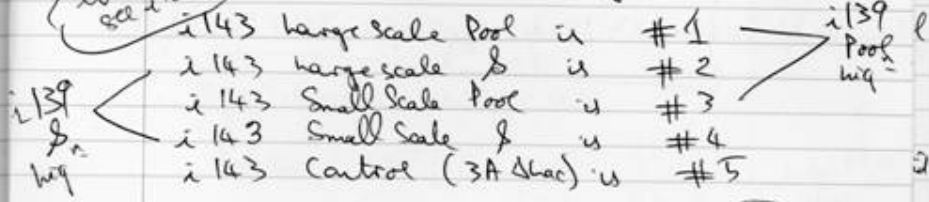 see
i143 Large Scale Pool is #1
i143 Large scale $ is #2
i143 Small Scale Pool is #3
i143 Small Scale $ is #4
i143 Control (3A Δhac) is #5
i139
Pool
hiq
i139
$
hiq